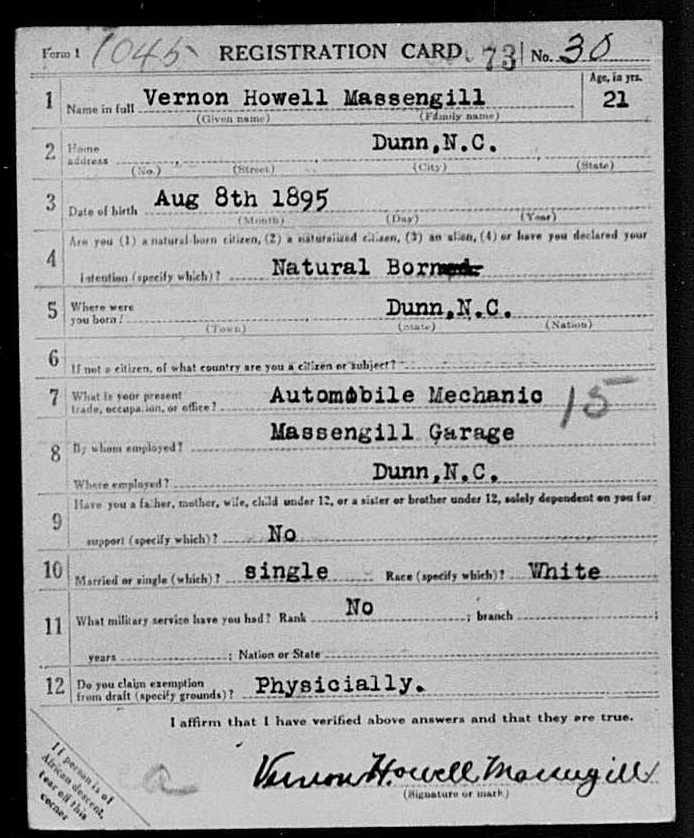 Form 1 1045 REGISTRATION CARD 731 No. 30
Age, in yrs.
1 Name in full Vernon Howell Massengill 21
(Given name) (Family name)
2 Home address Dunn,N.C.
(No.) (Street) (City) (State)
3 Date of birth Aug 8th 1895
(Month) (Day) (Year)
Are you (1) a natural-born citizen, (2) a naturalized citizen, (3) an alien, (4) or have you declared your
4 intention (specify which)? Natural Born
5 Where were you born? Dunn,N.C.
(Town) (State) (Nation)
6 If not a citizen, of what country are you a citizen or subject?
7 What is your present trade, occupation, or office? Automobile Mechanic 15
8 By whom employed? Massengill Garage
Where employed? Dunn,N.C.
9 Have you a father, mother, wife, child under 12, or a sister or brother under 12, solely dependent on you for
support (specify which)? No
10 Married or single (which)? single Race (specify which)? White
11 What military service have you had? Rank No ; branch ;
years ; Nation or State
12 Do you claim exemption from draft (specify grounds)? Physicially.
I affirm that I have verified above answers and that they are true.
If person is of
African descent,
tear off this
corner
a
Vernon Howell Massengill
(Signature or mark)